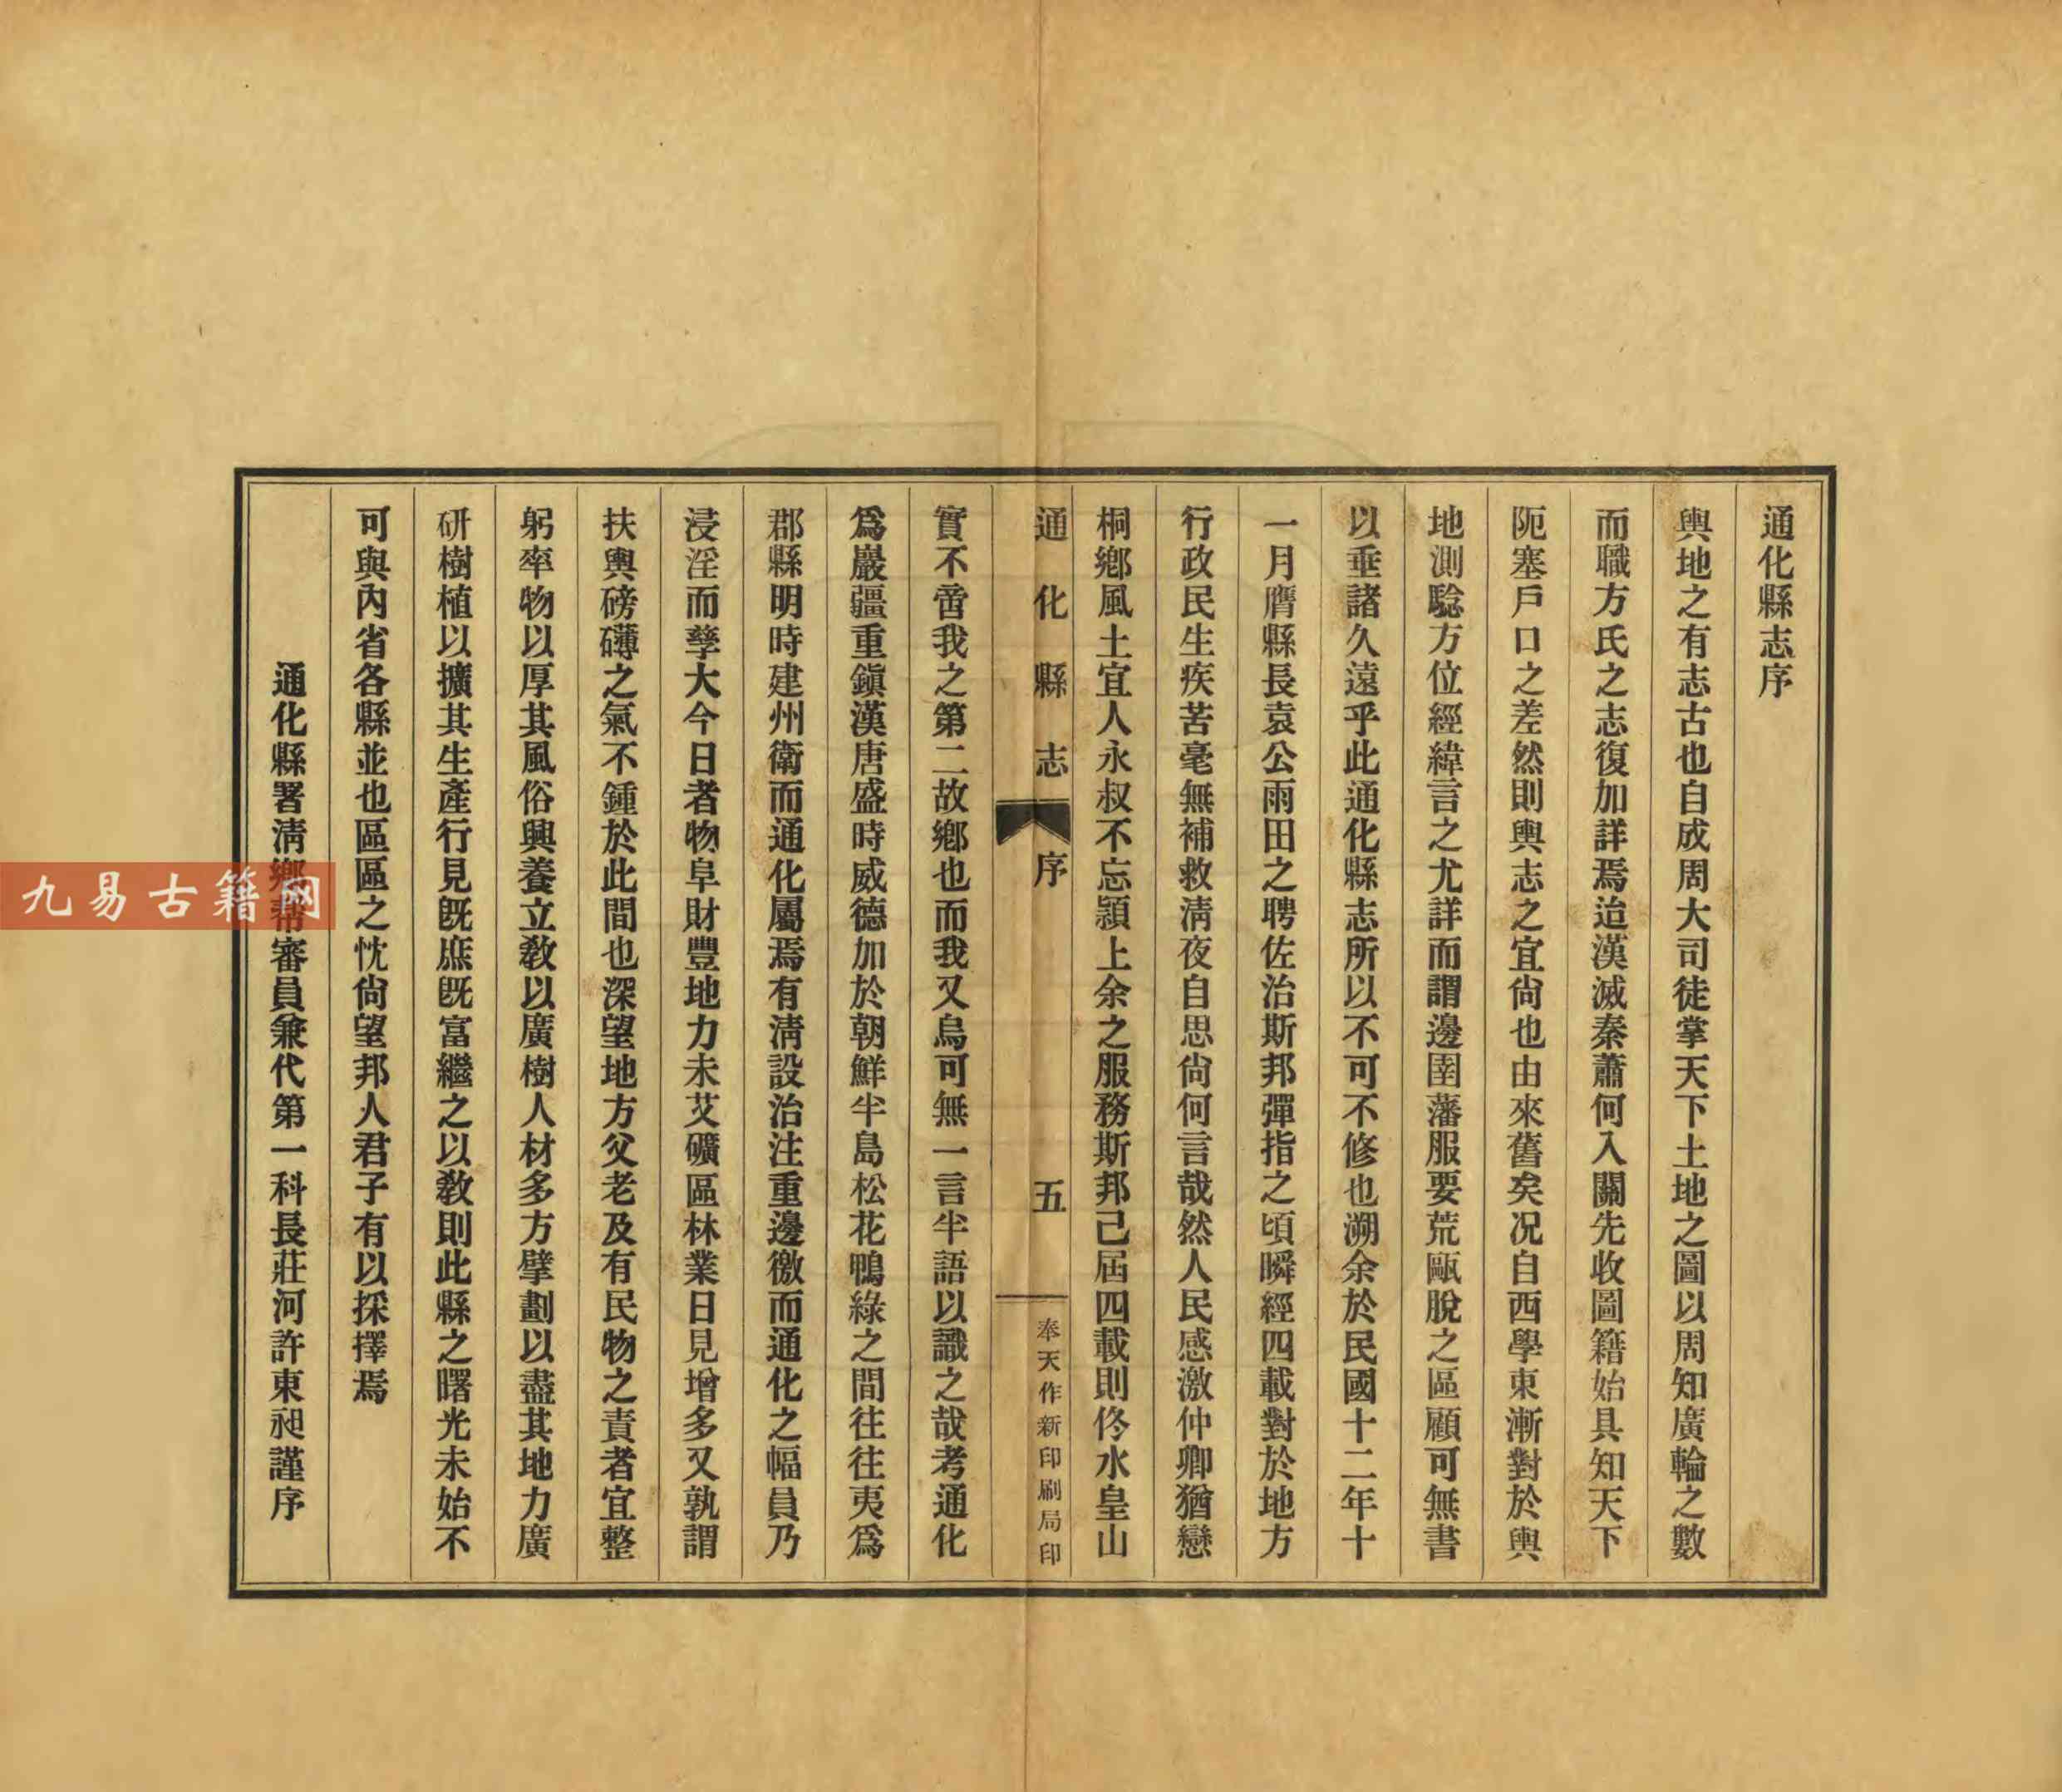 通化縣志序
輿地之有志古也自成周大司徒掌天下土地之圖以周知廣輪之數
而職方氏之志復加詳焉迨漢滅秦蕭何入關先收圖籍始具知天下
阨塞戶口之差然則輿志之宜尙也由來舊矣况自西學東漸對於輿
地測騐方位經緯言之尤詳而謂邊圉藩服要荒甌脫之區顧可無書
以垂諸久遠乎此通化縣志所以不可不修也溯余於民國十二年十
一月膺縣長袁公雨田之聘佐治斯邦彈指之頃瞬經四載對於地方
行政民生疾苦毫無補救淸夜自思尙何言哉然人民感激仲卿猶戀
桐鄕風土宜人永叔不忘潁上余之服務斯邦己屆四載則佟水皇山
通化縣志 序 五 奉天作新印刷局印
實不啻我之第二故鄕也而我又烏可無一言半語以識之哉考通化
爲巖疆重鎭漢唐盛時威德加於朝鮮半島松花鴨綠之間往往夷爲
郡縣明時建州衛而通化屬焉有淸設治注重邊徼而通化之幅員乃
浸淫而孳大今日者物阜財豐地力未艾礦區林業日見增多又孰謂
扶輿磅礴之氣不鍾於此間也深望地方父老及有民物之責者宜整
躬率物以厚其風俗興養立敎以廣樹人材多方擘劃以盡其地力廣
研樹植以擴其生產行見旣庶旣富繼之以敎則此縣之曙光未始不
可與內省各縣並也區區之忱尙望邦人君子有以採擇焉
通化縣署淸鄕幇審員兼代第一科長莊河許東昶謹序
九易古籍网